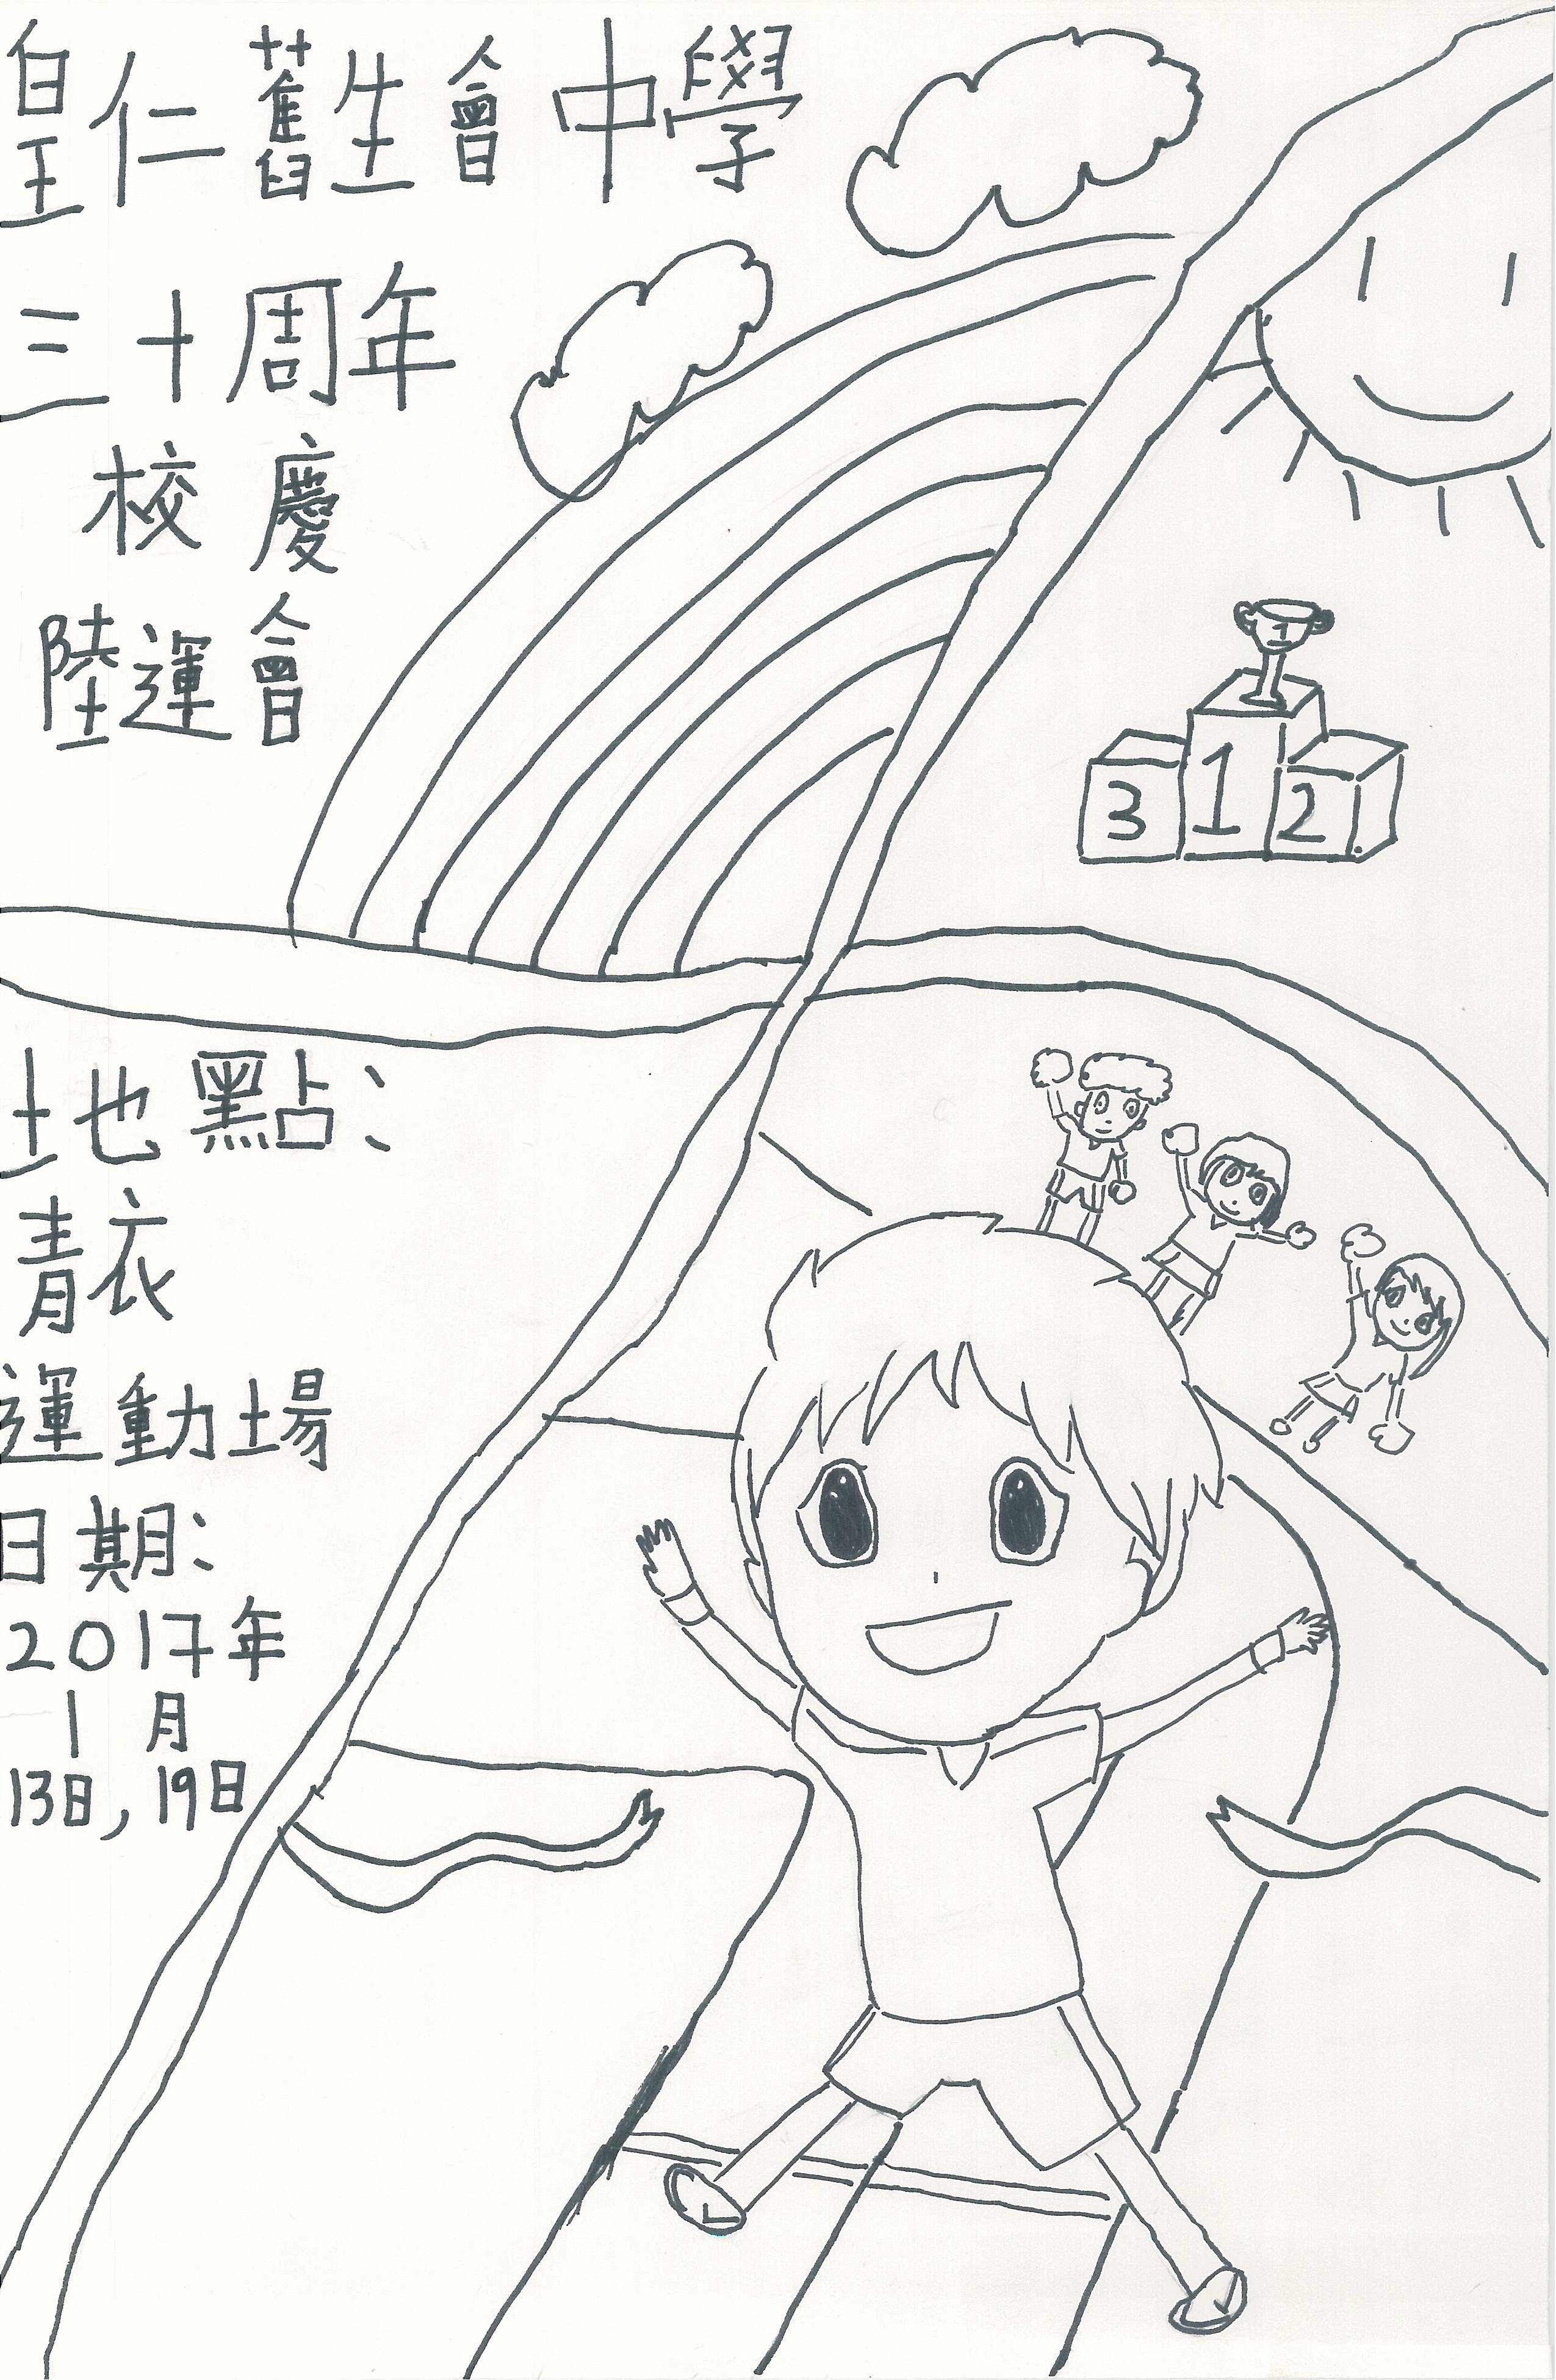 皇仁舊生會中學
三十周年
校慶
陸運會
3 1 2
地點:
青衣
運動場
日期:
2017年
1月
13日, 19日